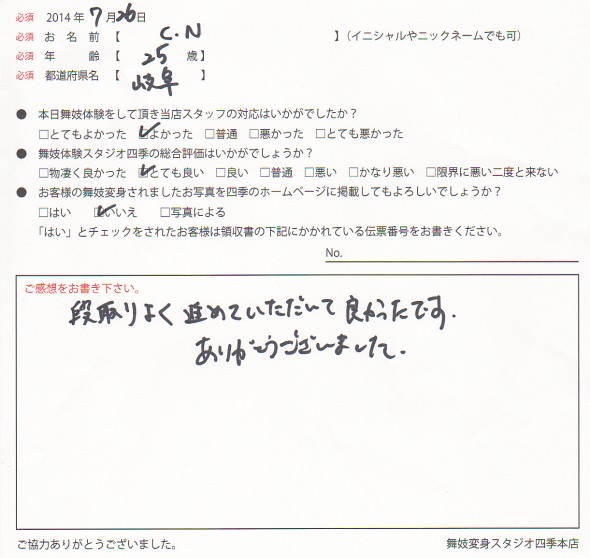 必須 2014年 7月26日
必須 お名前【 C.N 】(イニシャルやニックネームでも可)
必須 年齢【 25 歳】
必須 都道府県名【 岐阜 】
● 本日舞妓体験をして頂き当店スタッフの対応はいかがでしたか?
□とてもよかった ☑よかった □普通 □悪かった □とても悪かった
● 舞妓体験スタジオ四季の総合評価はいかがでしょうか?
□物凄く良かった ☑とても良い □良い □普通 □悪い □かなり悪い □限界に悪い二度と来ない
● お客様の舞妓変身されましたお写真を四季のホームページに掲載してもよろしいでしょうか?
□はい ☑いいえ □写真による
「はい」とチェックをされたお客様は領収書の下記にかかれている伝票番号をお書きください。
No.
ご感想をお書き下さい。
段取りよく進めていただいて良かったです.
ありがとうございました.
ご協力ありがとうございました。 舞妓変身スタジオ四季本店